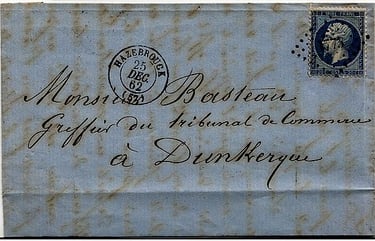 HAZEBROUCK
25
DEC.
62
(57)
Monsieur Basteau
Greffier du tribunal de Commerce
à Dunkerque